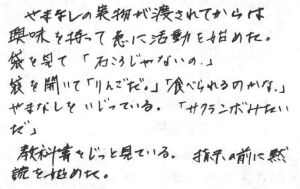 やまなしの実物が渡されてからは
興味を持って急に活動を始めた。
袋を見て「石ころじゃないの。」
袋を開いて「りんごだ。」「食べられるのかな。」
やまなしをいじっている。「サクランボみたい
だ」
教科書をじっと見ている。指示の前に黙
読を始めた。